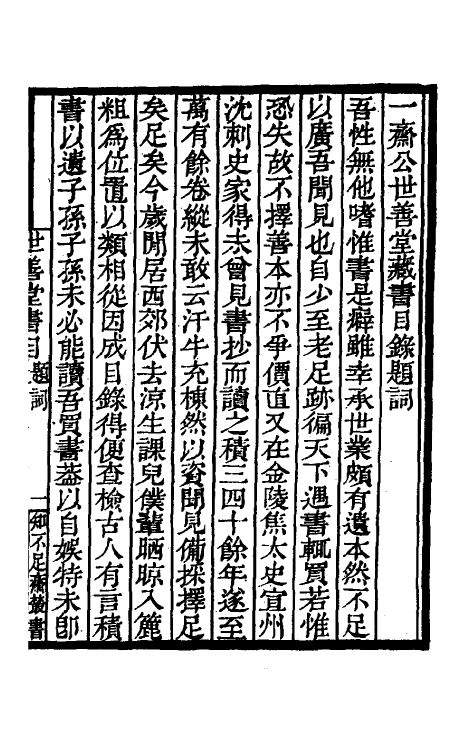 一齋公世善堂藏書目錄題詞
吾性無他嗜惟書是癖雖幸承世業頗有遺本然不足
以廣吾聞見也自少至老足跡徧天下遇書輒買若惟
恐失故不擇善本亦不爭價值又在金陵焦太史宣州
沈刺史家得未曾見書抄而讀之積三四十餘年遂至
萬有餘卷縱未敢云汗牛充棟然以資聞見備採擇足
矣足矣今歲閒居西郊伏去涼生課兒僕輩晒晾入簏
粗為位置以類相從因成目錄得便查檢古人有言積
書以遺子孫子孫未必能讀吾買書葢以自娛特未卽
世善堂書目題詞 一 知不足齋叢書